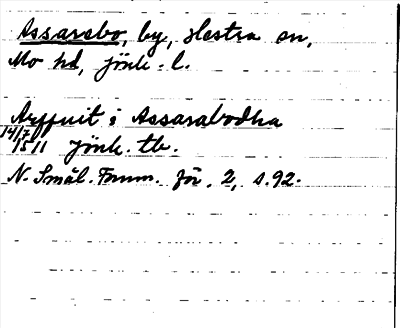 Assarebo, by, Hestra sn,
Mo hd, Jönk. l.
Arffuit i Assarabodha
14/7 1511 Jönk. tb.
N. Smål. Fornm. för. 2, s. 92.